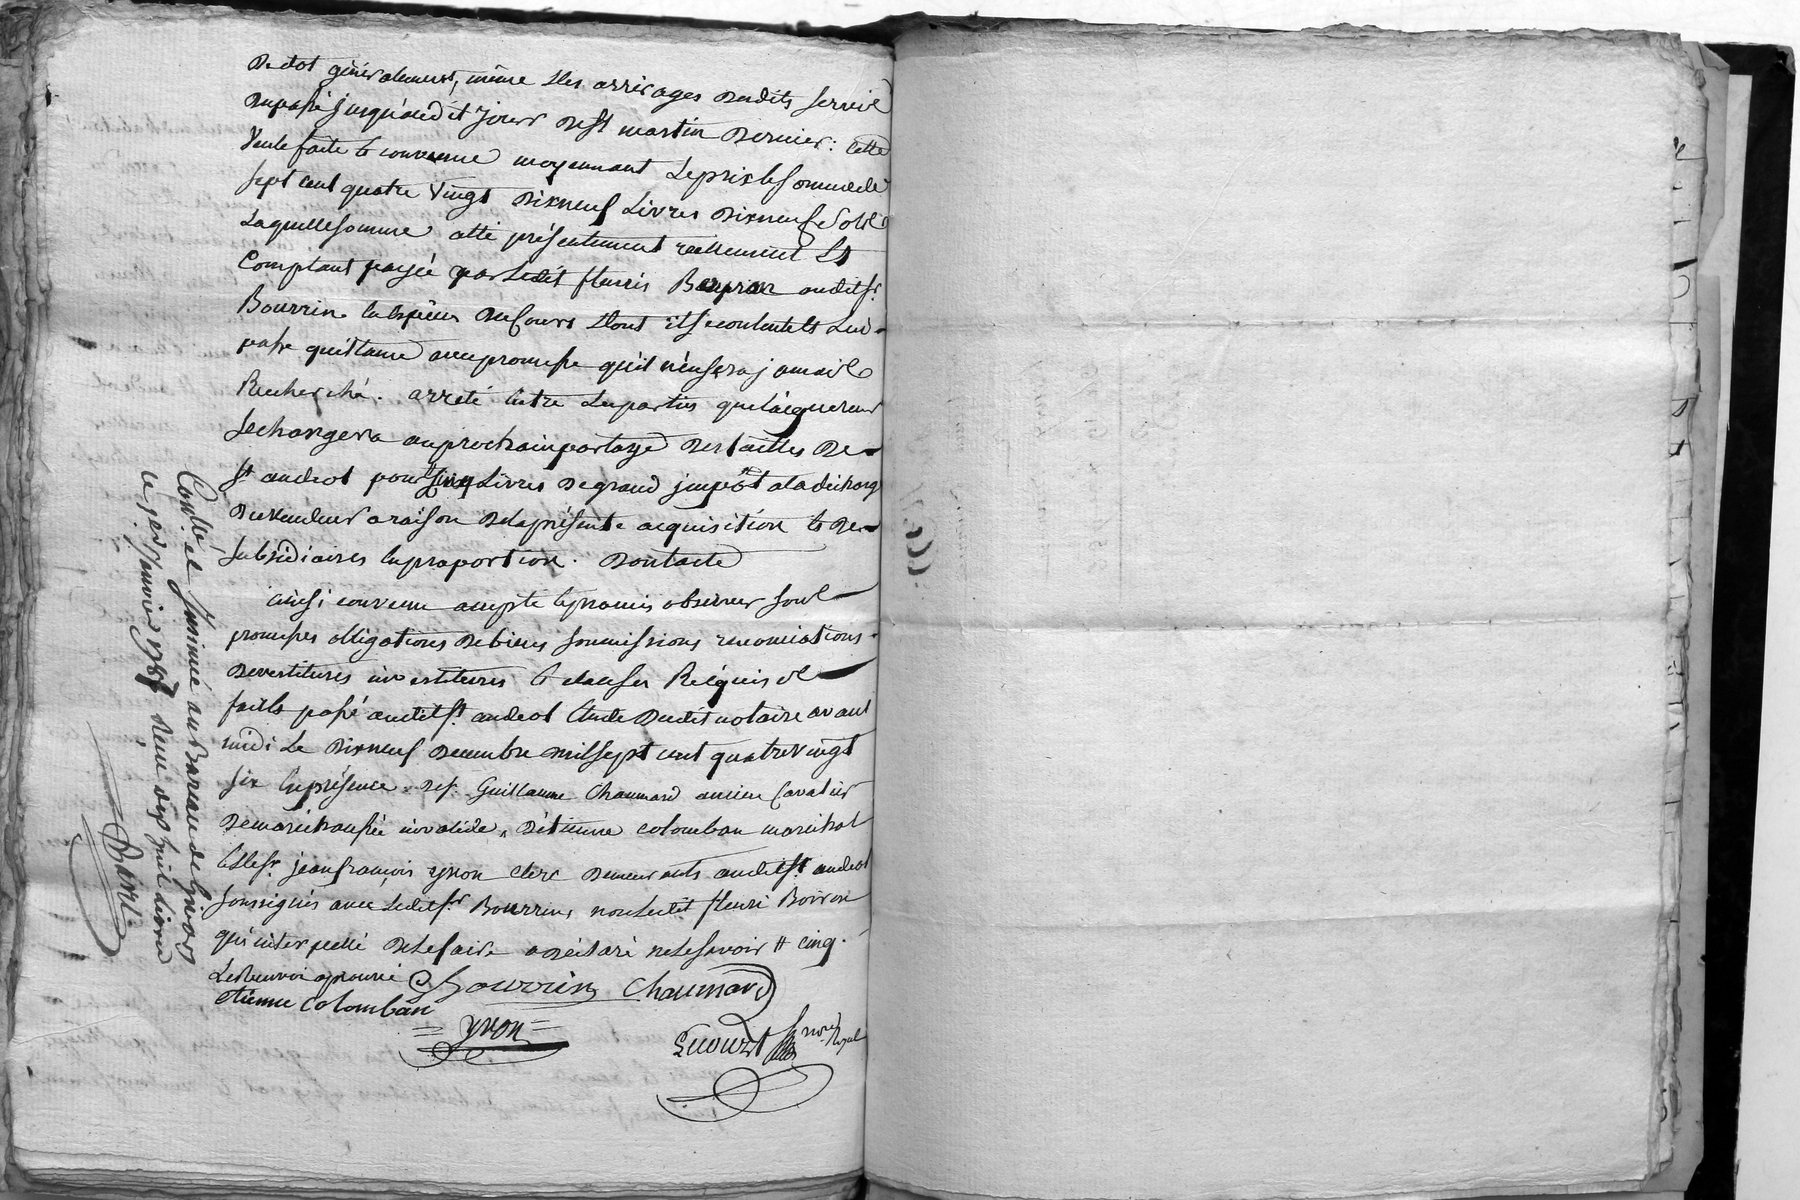 De dot généralement, même Des arrirages Desdits servis
Dupassé jusqu'audit jour De st martin Dernier: cette
Vente faite & convenue moyennant Leprix & somme de
sept cent quatre Vingt Dixneuf Livres Dixneuf Sols
Laquelle somme a été présentement réellement Et
Comptant payée par Ledit fleuris Boyron audit sr.
Bourrin en espèces De Cours Dont il se contente Et Lui
passe quittance avec promesse qu'il n'en sera jamais
Recherché. arrêté Entre Les parties que L'acquereur
se chargera au prochain partage Des tailles De
st andeol pour cinq Livres De grand impôt a la décharge
Du vendeur a raison De la présente acquisition & Des
subsidiaires en proportion. Dont acte
ainsi convenu accepté & promis observer sous
promesses obligations De biens soumissions renonciations
Devestitures investitures & clauses Requises
faits & passé audit st. andeol Etude Dudit notaire avant
midi Le Dixneuf Decembre mil sept cent quatre vingt
six En présence De sr. Guillaume Chaumard ancien Cavalier
De maréchaussée invalide, D'étienne colomban maréchal
Et De sr. jean françois yvon clerc Demeurants audit st. andeol
soussignés avec Ledit sr. Bourrin, non Ledit fleuri Boiron
qui interpellé De Le faire a Déclaré ne Le savoir # cinq.
Le Renvoi aprouvé Bourrin Chaumard
etienne Colomban
yvon
nore. Royal
Conllé et Insinué au Bureau de Givors
Le 1er janvier 1787 Reçu dix huit livres